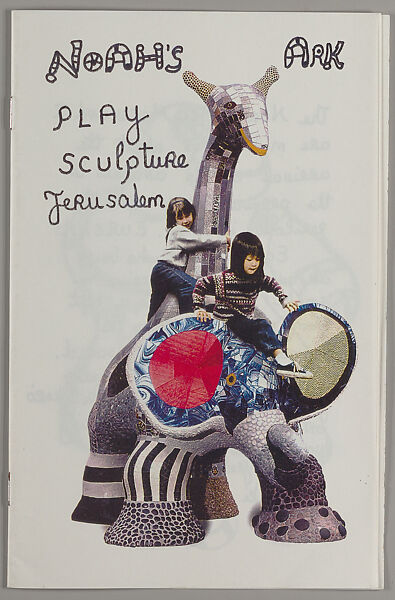 NOAH'S ARK
PLAY
SCULPTURE
Jerusalem